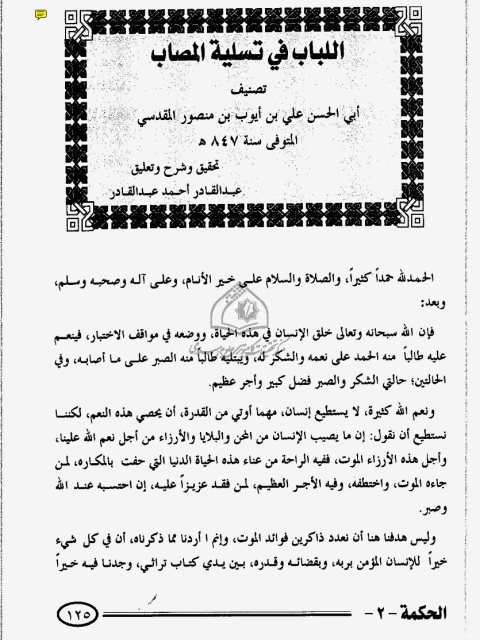 اللباب في تسلية المصاب
تصنيف
أبي الحسن علي بن أيوب بن منصور المقدسي
المتوفى سنة ٨٤٧ هـ
تحقيق وشرح وتعليق
عبدالقادر أحمد عبدالقادر
الحمدلله حمداً كثيراً، والصلاة والسلام على خير الأنام، وعلى آله وصحبه وسلم،
وبعد:
فإن الله سبحانه وتعالى خلق الإنسان في هذه الحياة، ووضعه في مواقف الاختبار، فينعم
عليه طالباً منه الحمد على نعمه والشكر له، ويبتليه طالباً منه الصبر على ما أصابه، وفي
الحالتين؛ حالتي الشكر والصبر فضل كبير وأجر عظيم.
ونعم الله كثيرة، لا يستطيع إنسان، مهما أوتي من القدرة، أن يحصي هذه النعم، لكننا
نستطيع أن نقول: إن ما يصيب الإنسان من المحن والبلايا والأرزاء من أجل نعم الله علينا،
وأجل هذه الأرزاء الموت، ففيه الراحة من عناء هذه الحياة الدنيا التي حفت بالمكاره، لمن
جاءه الموت، واختطفه، وفيه الأجر العظيم، لمن فقد عزيزاً عليه، إن احتسبه عند الله
وصبر.
وليس هدفنا هنا أن نعدد ذاكرين فوائد الموت، وإنم ا أردنا مما ذكرناه، أن في كل شيء
خيراً للإنسان المؤمن بربه، وبقضائه وقدره، بين يدي كتاب تراثي، وجدنا فيه خيراً
الحكمة - ٢ - ١٢٥